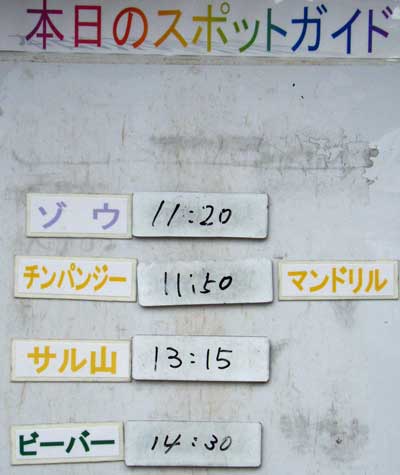 本日のスポットガイド
ゾウ 11:20
チンパンジー 11:50 マンドリル
サル山 13:15
ビーバー 14:30